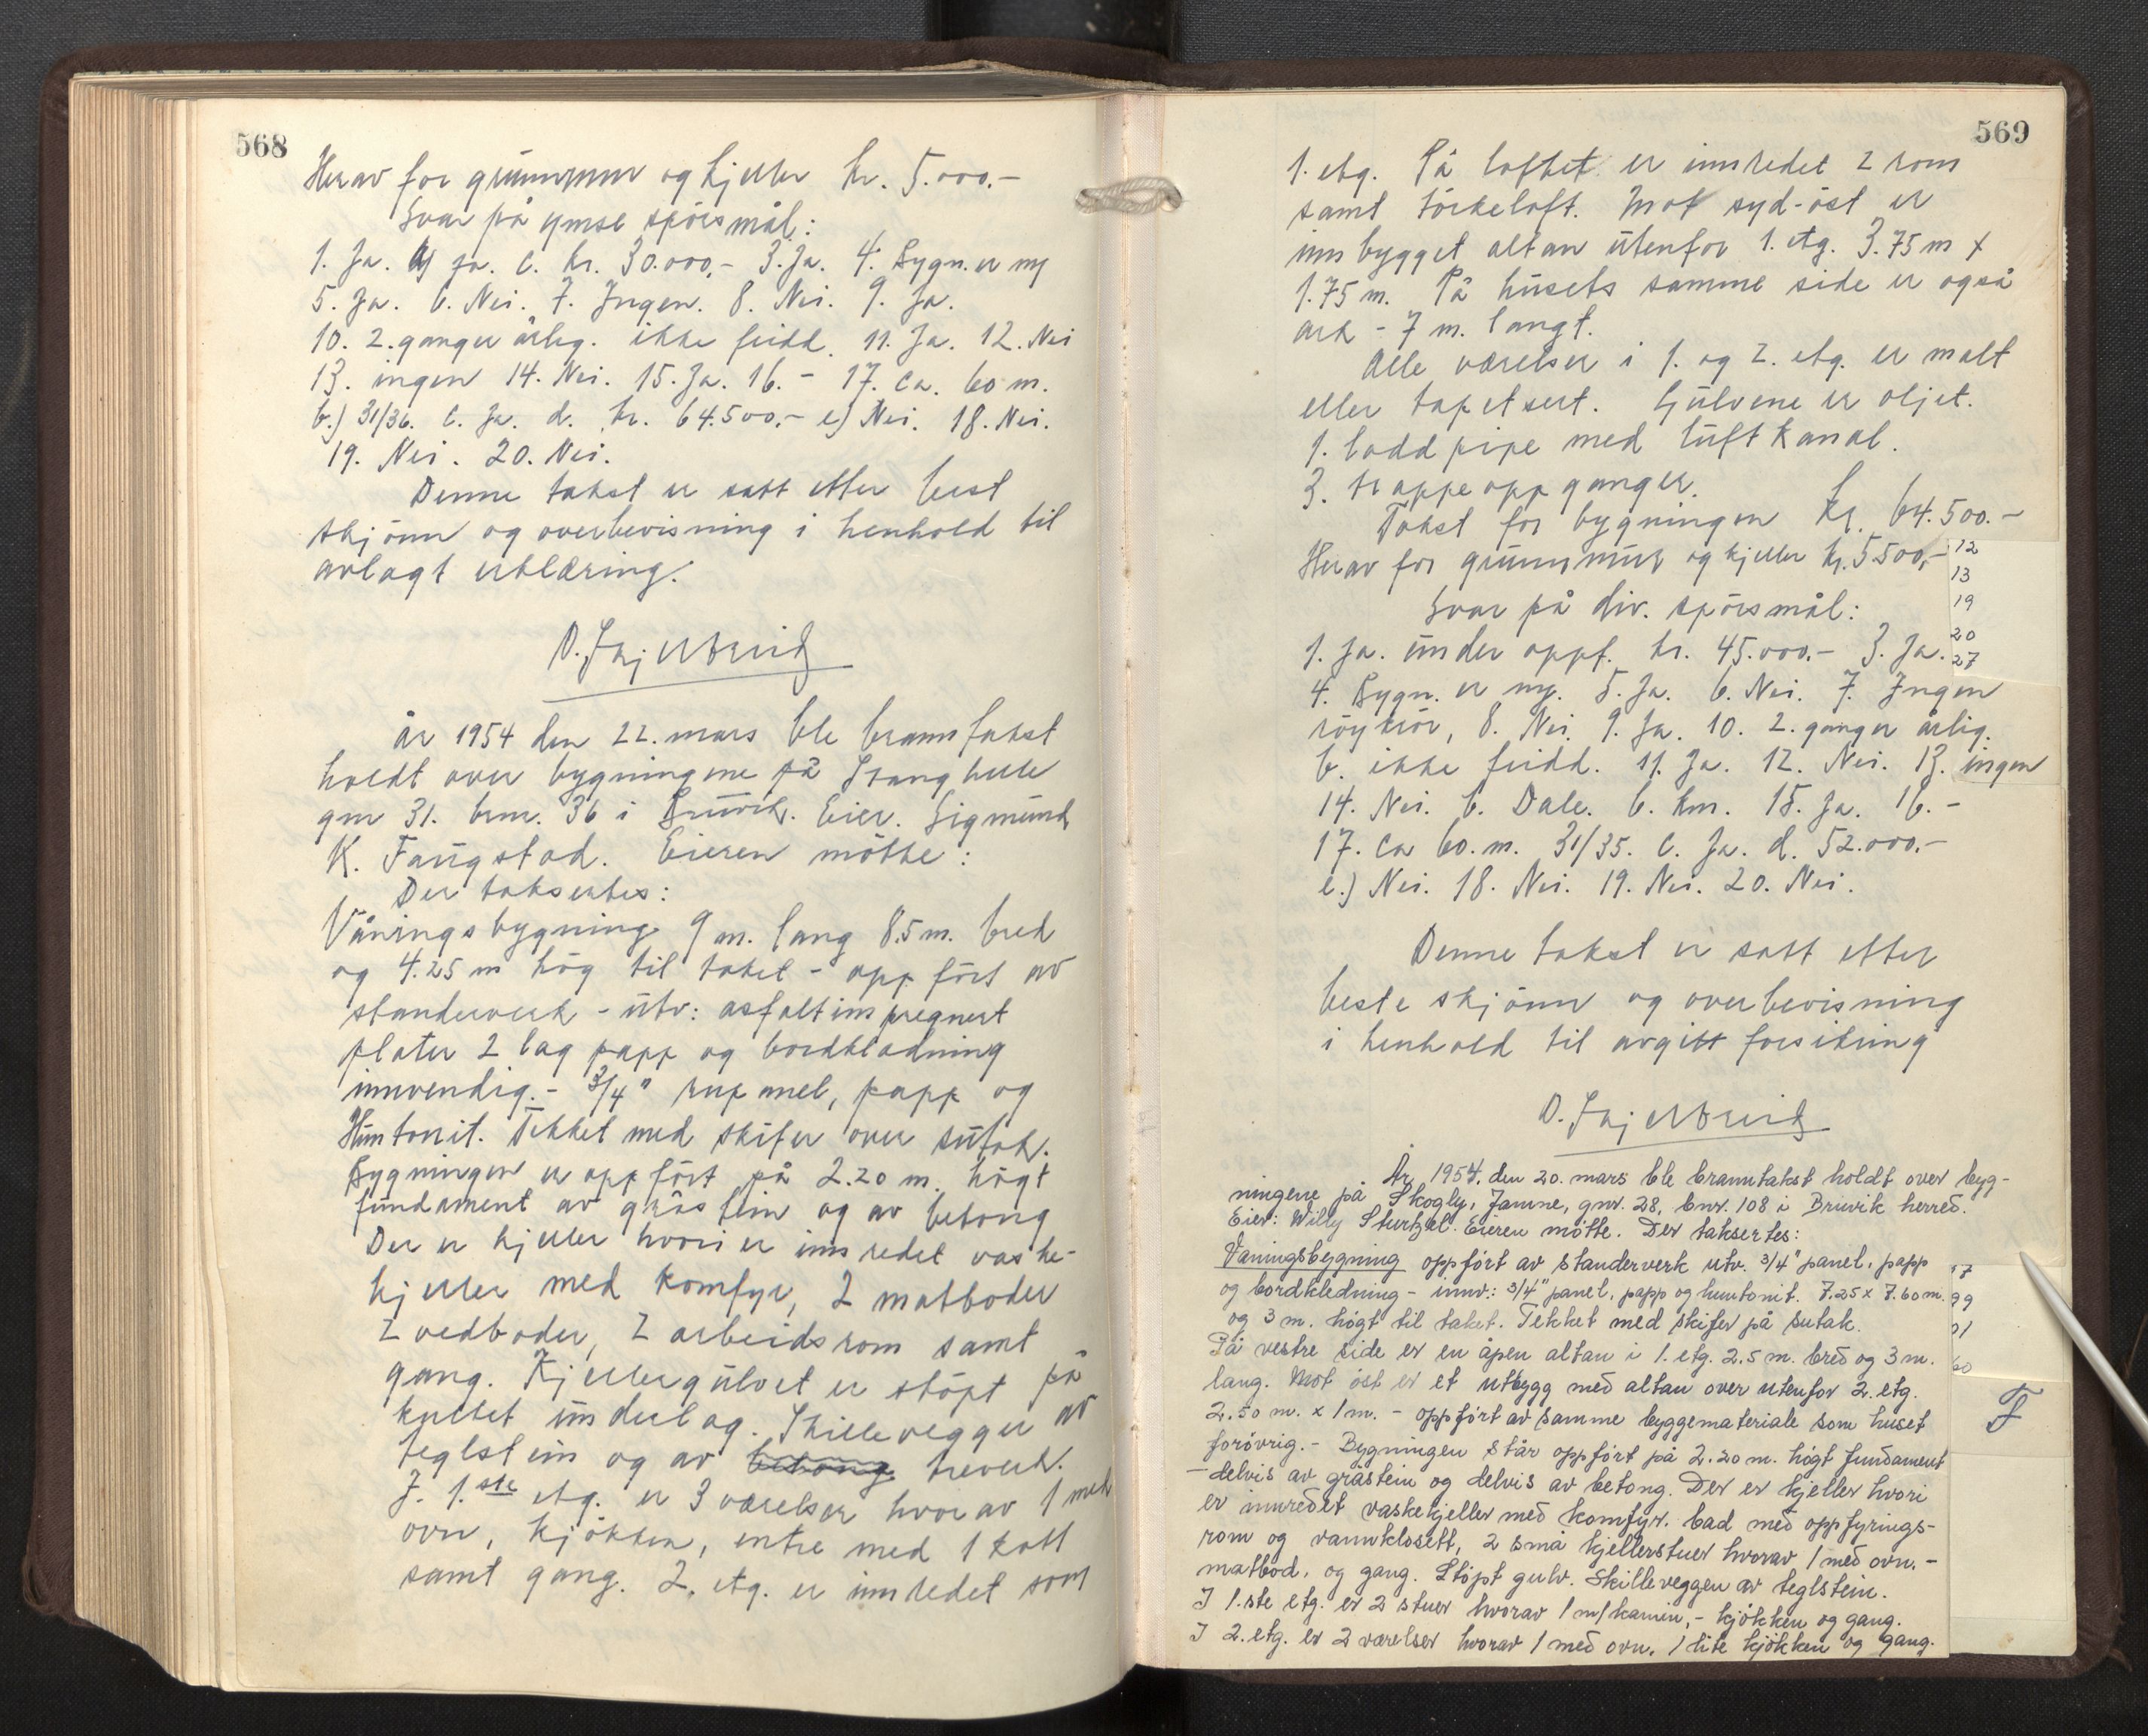 568
Herav for grunnmur og kjeller kr. 5.000.-
Svar på ymse spörsmål:
1. Ja. b) Ja. c. kr. 30.000,- 3. Ja. 4. Bygn. er ny
5. Ja. 6. Nei. 7. Ingen. 8. Nei. 9. Ja.
10. 2. ganger årlig. ikke feidd. 11. Ja. 12. Nei
13. ingen 14. Nei. 15. Ja. 16. - 17. ca. 60 m.
b.) 31/36. c. Ja. d. kr. 64.500.- e) Nei. 18. Nei.
19. Nei. 20. Nei.
Denne takst er satt etter best
skjönn og overbevisning i henhold til
avlagt erklæring.
O. Skjerbreid
år 1954 den 22. mars ble branntakst
holdt over bygningene på Stanghelle
gnr 31. bnr. 36 i Bruvik. Eier. Sigmund
K. Faugstad. Eieren mötte:
Der taksertes:
Våningsbygning 9 m. lang 8.5 m. bred
og 4.25 m hög til taket - oppfört av
standerverk - utv: asfaltimpregnert
plater 2 lag papp og bordkledning
innvendig. - 3/4" rupanel, papp og
Huntonit. Tekket med skifer over sutak.
Bygningen er oppfört på 2.20 m. högt
fundament av gråstein og av betong
Der er kjeller hvori er innredet vaske-
kjeller med komfyr, 2 matboder
2 vedboder, 2 arbeidsrom samt
gang. Kjellergulvet er stöpt på
kultet underlag. Skillevegger av
teglstein og av betong treverk.
I. 1.ste etg. er 3 værelser hvorav 1 med
ovn, kjökken, entre med 1 kott
samt gang. 2. etg. er innredet som
569
1. etg. På loftet er innredet 2 rom
samt törkeloft. Mot syd-öst er
innbygget altan utenfor 1. etg. 3.75 m x
1.75 m. På husets samme side er også
ark - 7 m. langt.
Alle værelser i 1. og 2. etg. er malt
eller tapetsert. Gulvene er oljet.
1. ladd pipe med luftkanal.
3. trappeoppganger.
Takst for bygningen kr. 64.500.-
Herav for grunnmur og kjeller kr. 5500,-
Svar på div. spörsmål:
1. Ja. under oppf. kr. 45.000.- 3. Ja.
4. Bygn. er ny. 5. Ja. 6. Nei. 7. Ingen
röykrör, 8. Nei. 9. Ja. 10. 2. ganger årlig.
b. ikke feidd. 11. Ja. 12. Nei. 13. ingen
14. Nei. b. Dale. 6. km. 15. Ja. 16. -
17. ca 60. m. 31/35. c. Ja. d. 52.000.-
e.) Nei. 18. Nei. 19. Nei. 20. Nei.
12
13
19
20
27
Denne takst er satt etter
beste skjönn og overbevisning
i henhold til avgitt forsikring
O. Skjerbreid
År 1954, den 20. mars ble branntakst holdt over byg-
ningene på Skogly, Jamne, gnr. 28, bnr. 108 i Bruvik herred.
Eier: Willy Sturtzel. Eieren mötte. Der taksertes:
Våningsbygning oppfört av standerverk utv. 3/4" panel, papp
og bordkledning - innv.: 3/4" panel, papp og huntonit. 7.25 x 7.60 m.
og 3 m. högt til taket. Tekket med skifer på sutak.
På vestre side er en åpen altan i 1. etg. 2.5 m. bred og 3 m.
lang. Mot öst er et utbygg med altan over utenfor 2. etg.
2.50 m. x 1 m. - oppfört av samme byggemateriale som huset
forövrig. - Bygningen står oppfört på 2.20 m. högt fundament
- delvis av gråstein og delvis av betong. Der er kjeller hvori
er innredet vaskekjeller med komfyr. bad med oppfyrings-
rom og vannklosett, 2 små kjellerstuer hvorav 1 med ovn. -
matbod, og gang. Stöpt gulv. Skilleveggen av teglstein.
I 1.ste etg. er 2 stuer hvorav 1 m/kamin, - kjökken og gang.
I 2. etg. er 2 værelser hvorav 1 med ovn, 1 lite kjökken og gang.
99
01
60
F